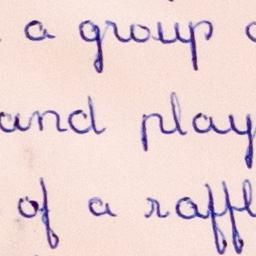 a group
and play
of a raffl